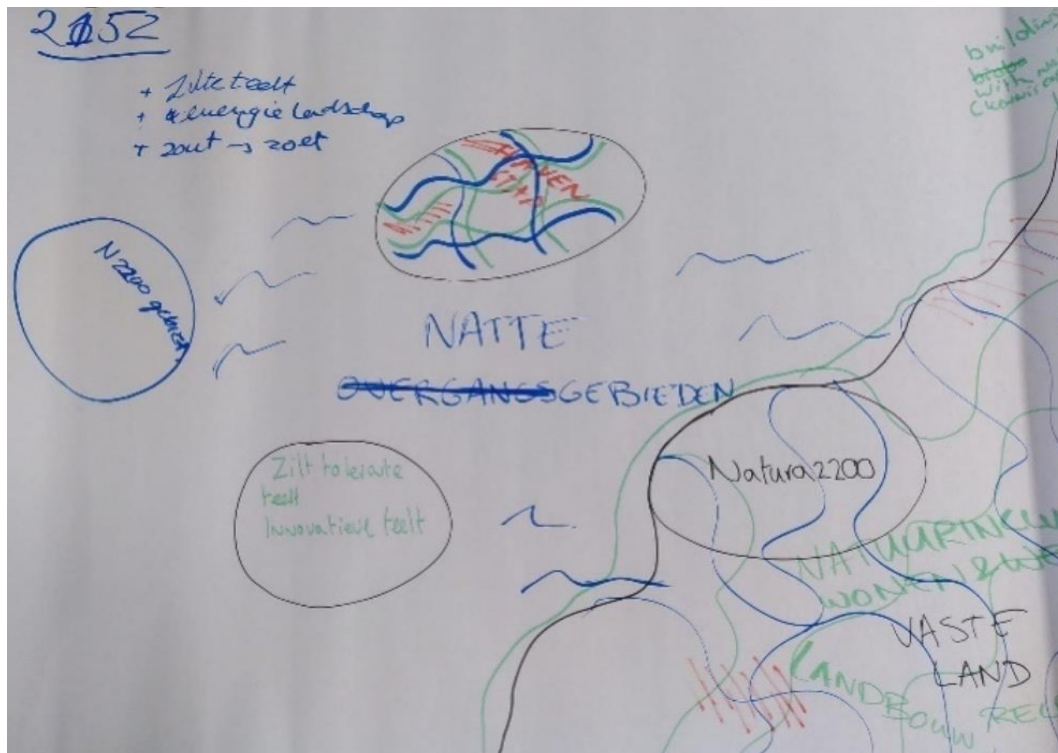 2152
+ Zilte teelt
+ energielandschap
+ zout → zoet
building
with
HAVEN
STAD
N2200 gebied
NATTE
OVERGANGSGEBIEDEN
Zilt tolerante
teelt
Innovatieve teelt
Natura2200
NATUURINKLU
WONEN & WE
VASTE
LAND
LANDBOUW